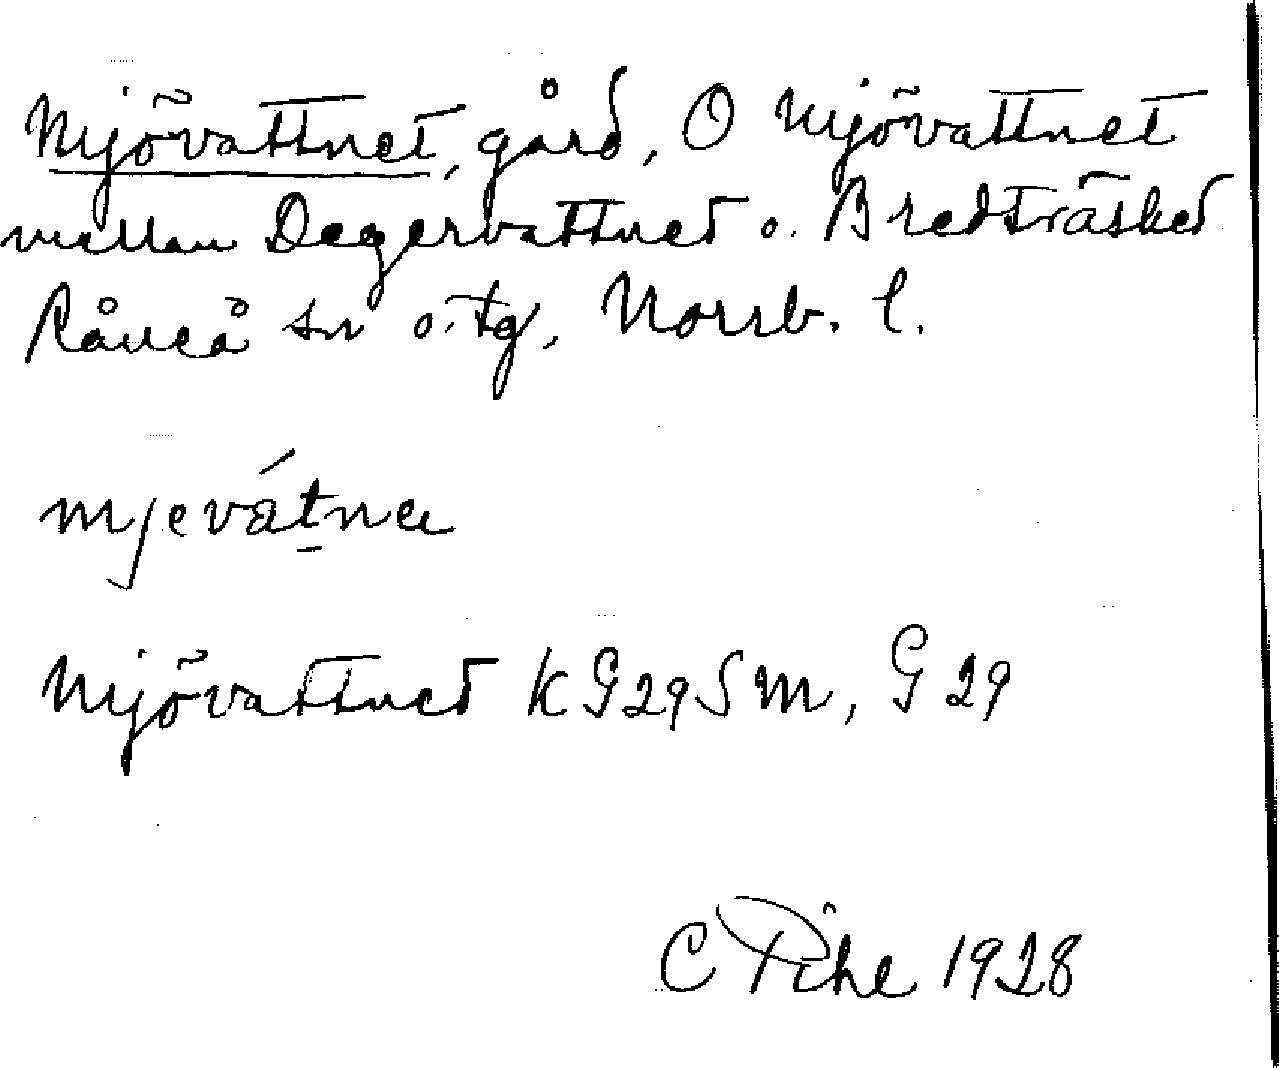 Mjövattnet, gård, O Mjövattnet
mellan Degervattnet o. Bredträsket
Råneå sn o. tg, Norrb. l.
mjevátna
Mjövattnet KG29SM, G29
C Pihl 1928